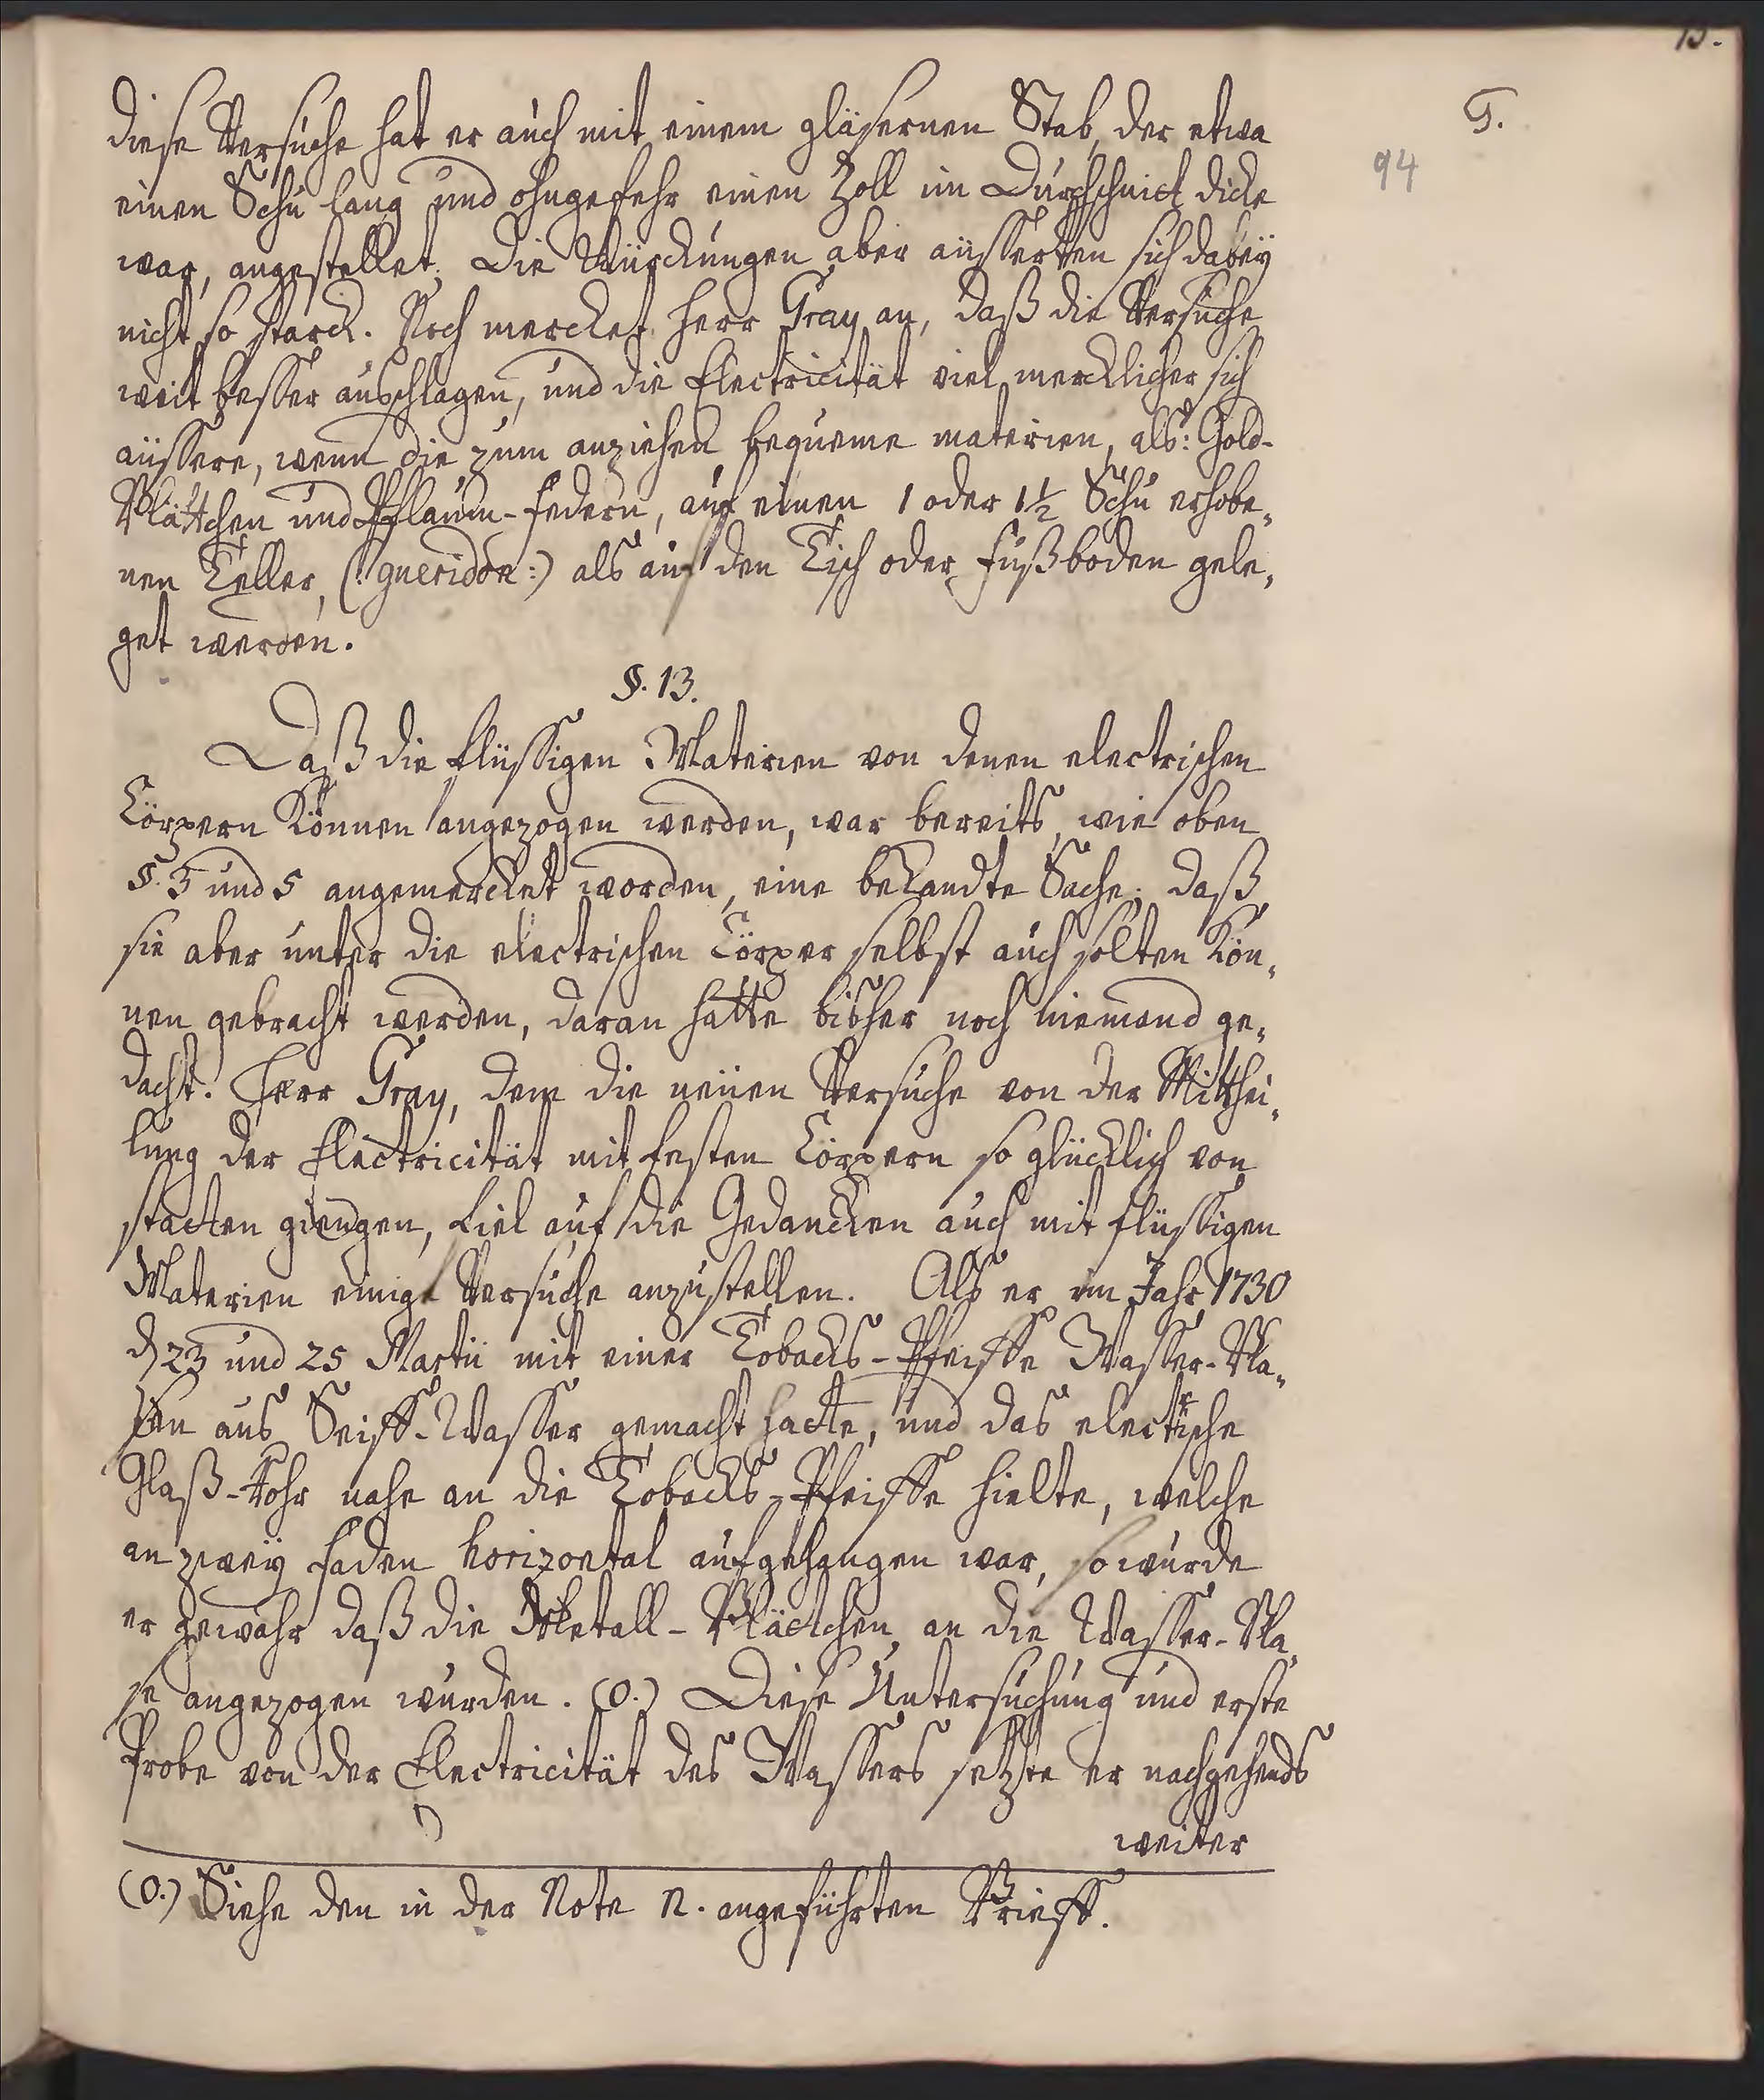 G.
94
diese Versuche hat er auch mit einem gläsernen Stab, der etwa
einen Schu lang und ohngefehr einen Zoll im Durchschnitt dicke
war, angestellet. Die Würckungen aber äusserten sich dabeÿ
nicht so starck. Noch mercket Herr Gray an, daß die Versuche
weit besser ausschlagen, und die Electricität viel mercklicher sich
äussere, wenn die zum anziehen bequeme materien, als: Gold-
Blättchen und Pflaum-Federn, auf einen 1 oder 1½ Schu erhobe-
nen Teller, (: gueridon:) als auf den Tisch oder Fußboden gele-
get werden.
§. 13.
Daß die flüssigen Materien von denen electrischen
Cörpern können angezogen werden, war bereits, wie oben
§. 3 und 5 angemercket worden, eine bekandte Sache; daß
sie aber unter die electrischen Cörper selbst auch solten kön-
nen gebracht werden, daran hatte bisher noch niemand ge-
dacht. Herr Gray, dem die neüen Versuche von der Mitthei-
lung der Electricität mit festen Cörpern so glücklich von
statten giengen, fiel auf die Gedancken auch mit flüssigen
Materien einige Versuche anzustellen. Als er im Jahr 1730
d 23 und 25 Martii mit einer Tobacks-Pfeiffe Wasser-Bla-
sen aus Seiff-Wasser gemacht hatte, und das electrische
Glaß-Rohr nahe an die Tobacks-Pfeiffe hielte, welche
an zweÿ Faden horizontal aufgehangen war, so wurde
er gewahr daß die Metall-Blättchen an die Wasser-Bla-
se angezogen wurden. (o.) Diese Untersuchung und erste
Probe von der Electricität des Wassers setzte er nachgehends
weiter
(o.) Siehe den in der Note n. angeführten Brieff.